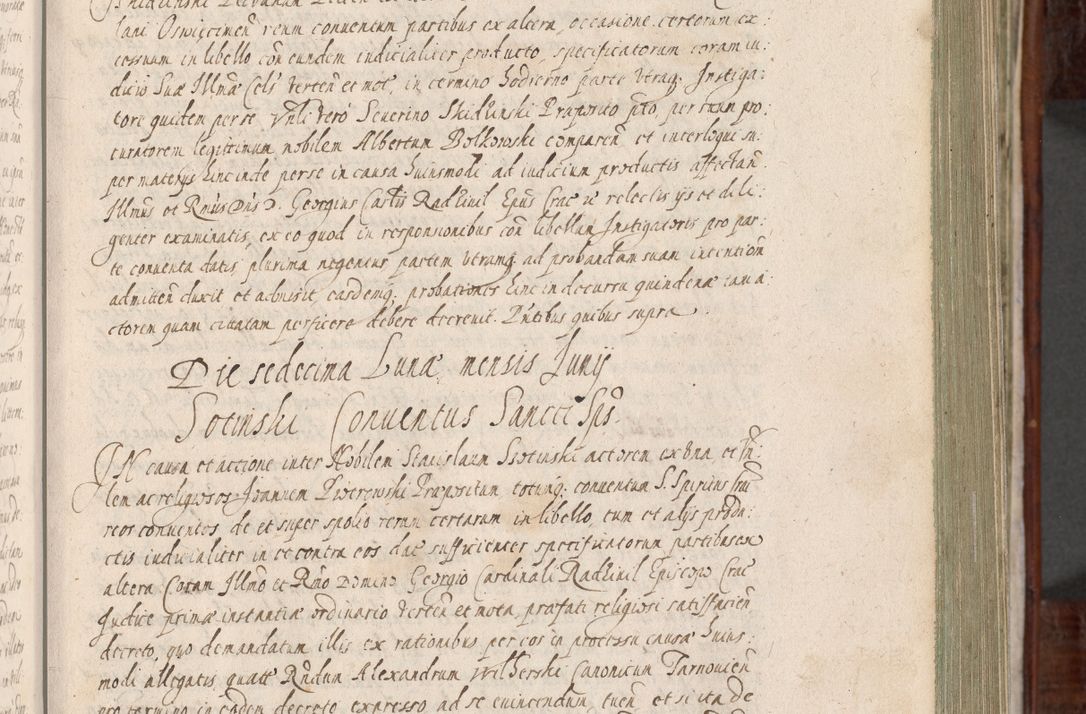 lani Oswięcimen̄ reum conuentum partibus ex altera, occasione certorum ex:
cessuum in libello con̄ eundem iudicialiter producto, specificatorum coram iu:
dicio Suæ Illmæ Cels verten̄ et mot, in termino hodierno parte vtraq; Instiga:
tore quidem per se Vnli vero Seuerino Skidzinski Præposito pto, per suum pro:
curatorem legittimum nobilem Albertum Bolkowski comparen̄ et interloqui su:
per materijs hincinde per se in causa huiusmodi ad iudicium productis affectan̄
Illmus et Rmus Dnus D. Georgius Cardlis Radziuil Epus Crac relectis ijs et dili:
genter examinatis, ex eo quod in responsionibus con̄ libellum Instigatoris pro par:
te conuenta datis, plurima negentur partem vtramq; ad probandum suam intention̄
admitten̄ duxit et admisit, easdemq; probationes hinc in decursu quindenæ tam a:
ctorem quam citatam perficere debere decreuit. Pntibus quibus supra
Die sedecima Lunæ mensis Junij
Sotinski Conuentus Sancti Spŝ
IN causa et actione inter Nobilem Stanislaum Ssotinski actorem ex vna et Hn:
lem ac religiosos Joannem Piverowski Præpositum totumq; conuentum S. Spiritus
reos conuentos de et super spolio rerum certarum in libello, tum et alijs produ:
ctis iudicialiter in et contra eos dat sufficienter specificatorum partibus ex
altera Coram Illmo et Rmo Domino Georgio Cardinali Radziuil Episcopo Crac
Judice primæ instantiæ ordinario verten̄ et mota, præfati religiosi satisfacien̄
decreto, quo demandatum illis ex rationibus per eos in processu causæ huius:
modi allegatis quatt Rndum Alexandrum Wilherski Canonicum Tarnouien̄
pro termino in eodem decreto expresso ad se euincendum, tuen̄ et si ita de